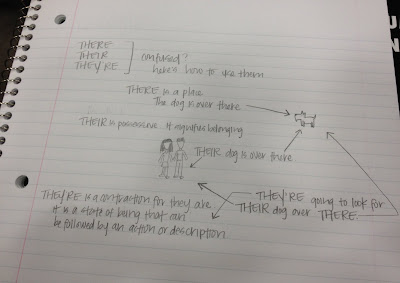 THERE
THEIR
THEY'RE
confused?
here's how to use them
THERE is a place
The dog is over there
THEIR is possessive It signifies belonging
THEIR dog is over there
THEY'RE is a contraction for they are
it is a state of being that can
be followed by an action or description
THEY'RE going to look for
THEIR dog over THERE